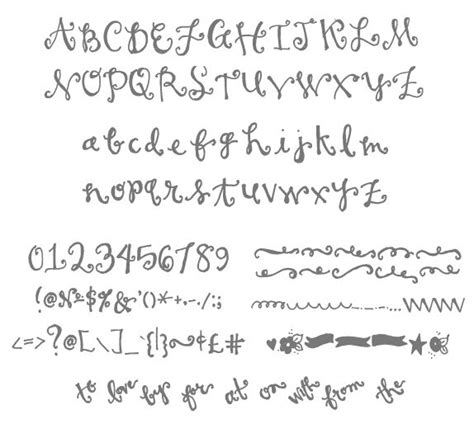 ABCDEFGHIJKLM
NOPQRSTUVWXYZ
abcdefghijklm
nopqrstuvwxyz
0123456789
<=>?@[\]_`{|}~¢£#
to love by for at on with from the